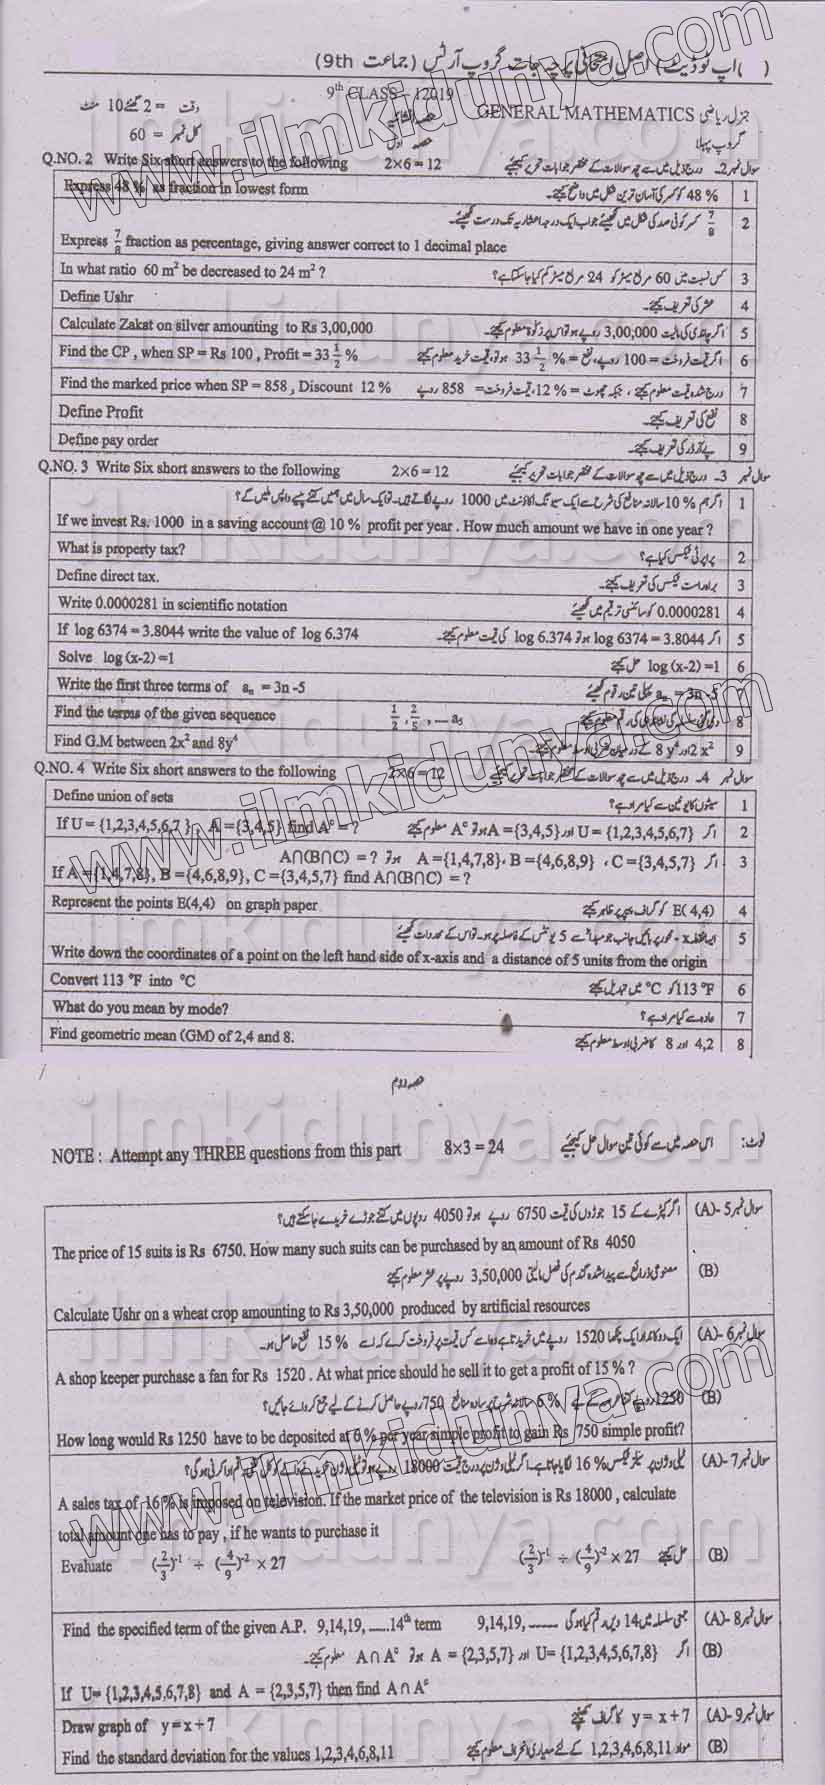 اپ ٹو ڈیٹ) اصل امتحانی پرچہ جات گروپ آرٹس (جماعت 9th)
9th CLASS - 12019
GENERAL MATHEMATICS جنرل ریاضی
وقت = 2 گھنٹے 10 منٹ
حصہ اول
گروپ پہلا
کل نمبر = 60
Q.NO. 2 Write Six short answers to the following 2×6=12 سوال نمبر 2۔ درج ذیل میں سے چھ سوالات کے مختصر جوابات تحریر کیجئے
Express 48 % as fraction in lowest form 48 % کو کسر کی آسان ترین شکل میں واضح کیجئے۔ 1
7/8 کسر کو فی صد کی شکل میں لکھیئے جواب ایک درجہ اعشاریہ تک درست لکھیئے۔ 2
Express 7/8 fraction as percentage, giving answer correct to 1 decimal place
In what ratio 60 m² be decreased to 24 m² ? کس نسبت میں 60 مربع میٹر کو 24 مربع میٹر کم کیا جا سکتا ہے؟ 3
Define Ushr عشر کی تعریف کیجئے۔ 4
Calculate Zakat on silver amounting to Rs 3,00,000 اگر چاندی کی مالیت 3,00,000 روپے ہو تو اس پر زکوٰۃ معلوم کیجئے۔ 5
Find the CP , when SP = Rs 100 , Profit = 33 1/2 % اگر قیمت فروخت = 100 روپے، نفع = % 33 1/2 ہو تو، قیمت خرید معلوم کیجئے 6
Find the marked price when SP = 858 , Discount 12 % درج شدہ قیمت معلوم کیجئے ، جبکہ چھوٹ = % 12، قیمت فروخت = 858 روپے 7
Define Profit نفع کی تعریف کیجئے۔ 8
Define pay order پے آرڈر کی تعریف کیجئے۔ 9
Q.NO. 3 Write Six short answers to the following 2×6=12 سوال نمبر 3۔ درج ذیل میں سے چھ سوالات کے مختصر جوابات تحریر کیجئے
اگر ہم % 10 سالانہ منافع کی شرح سے ایک سیونگ اکاؤنٹ میں 1000 روپے لگاتے ہیں۔ تو ایک سال میں ہمیں کتنے پیسے واپس ملیں گے؟ 1
If we invest Rs. 1000 in a saving account @ 10 % profit per year . How much amount we have in one year ?
What is property tax? پراپرٹی ٹیکس کیا ہے؟ 2
Define direct tax. براہ راست ٹیکس کی تعریف کیجئے۔ 3
Write 0.0000281 in scientific notation 0.0000281 کو سائنسی ترقیم میں لکھیئے 4
If log 6374 = 3.8044 write the value of log 6.374 اگر log 6374 = 3.8044 ہو تو log 6.374 کی قیمت معلوم کیجئے۔ 5
Solve log (x-2) =1 log (x-2) =1 حل کیجئے 6
Write the first three terms of aₙ = 3n -5 aₙ = 3n -5 پہلی تین رقوم لکھیئے
Find the terms of the given sequence 1/2 , 2/5 , ---- a₅ 8
Find G.M between 2x² and 8y⁴ 2 x² اور 8 y⁴ کے درمیان معلوم کیجئے۔ 9
Q.NO. 4 Write Six short answers to the following 2×6=12 سوال نمبر 4۔ درج ذیل میں سے چھ سوالات کے مختصر جوابات تحریر کیجئے
Define union of sets سیٹوں کا یونین سے کیا مراد ہے؟ 1
If U = {1,2,3,4,5,6,7 } , A = {3,4,5} find Aᶜ = ? اگر U = {1,2,3,4,5,6,7} اور A = {3,4,5} ہو تو Aᶜ معلوم کیجئے 2
اگر A = {1,4,7,8} , B = {4,6,8,9} , C = {3,4,5,7} ہو تو A∩(B∩C) = ? 3
If A = {1,4,7,8}, B = {4,6,8,9}, C = {3,4,5,7} find A∩(B∩C) = ?
Represent the points E(4,4) on graph paper E( 4,4) کو گراف پیپر پر ظاہر کیجئے 4
ایسا نقطہ x - محور پر بائیں جانب جو مبدا سے 5 یونٹس کے فاصلہ پر ہو۔ تو اس کے محددات لکھیئے 5
Write down the coordinates of a point on the left hand side of x-axis and a distance of 5 units from the origin
Convert 113 °F into °C 113 °F کو °C میں تبدیل کیجئے 6
What do you mean by mode? عادہ سے کیا مراد ہے؟ 7
Find geometric mean (GM) of 2,4 and 8. 4,2 اور 8 کا ضربی اوسط معلوم کیجئے 8
حصہ دوم
NOTE : Attempt any THREE questions from this part 8×3 = 24 نوٹ: اس حصہ میں سے کوئی تین سوال حل کیجئیے
سوال نمبر 5-(A) اگر کپڑے کے 15 جوڑوں کی قیمت 6750 روپے ہو تو 4050 روپوں میں کتنے جوڑے خریدے جا سکتے ہیں؟
The price of 15 suits is Rs 6750. How many such suits can be purchased by an amount of Rs 4050
(B) مصنوعی ذرائع سے پیدا شدہ گندم کی فصل مالیتی 3,50,000 روپے پر عشر معلوم کیجئے
Calculate Ushr on a wheat crop amounting to Rs 3,50,000 produced by artificial resources
سوال نمبر 6-(A) ایک دوکاندار ایک پنکھا 1520 روپے میں خریدتا ہے وہ اسے کس قیمت پر فروخت کرے کہ اسے % 15 نفع حاصل ہو۔
A shop keeper purchase a fan for Rs 1520 . At what price should he sell it to get a profit of 15 % ?
(B) 1250 روپے کتنے عرصہ کے لیے % 6 سالانہ شرح پر سادہ منافع 750 روپے حاصل کرنے کے لیے جمع کروائے جائیں؟
How long would Rs 1250 have to be deposited at 6 % per year simple profit to gain Rs 750 simple profit?
سوال نمبر 7-(A) ٹیلی ویژن پر سیلز ٹیکس % 16 لگایا جاتا ہے۔ اگر ٹیلی ویژن پر درج قیمت 18000 روپے ہو تو ٹیلی ویژن خریدنے والے کو کل کتنی رقم ادا کرنی ہو گی؟
A sales tax of 16 % is imposed on television. If the market price of the television is Rs 18000 , calculate
total amount one has to pay , if he wants to purchase it
Evaluate (2/3)⁻¹ ÷ (4/9)⁻² × 27 (2/3)⁻¹ ÷ (4/9)⁻² × 27 حل کیجئے (B)
Find the specified term of the given A.P. 9,14,19, .....14th term 9,14,19, ------ جمعی سلسلہ میں 14 ویں رقم کیا ہو گی سوال نمبر 8-(A)
(B) اگر U= {1,2,3,4,5,6,7,8} اور A = {2,3,5,7} ہو تو A ∩ Aᶜ معلوم کیجئے۔
If U= {1,2,3,4,5,6,7,8} and A = {2,3,5,7} then find A ∩ Aᶜ
Draw graph of y = x + 7 y = x + 7 کا گراف کھینچئے سوال نمبر 9-(A)
Find the standard deviation for the values 1,2,3,4,6,8,11 مواد 1,2,3,4,6,8,11 کے لئے معیاری انحراف معلوم کیجئے (B)
www.ilmkidunya.com
ilmkidunya.com